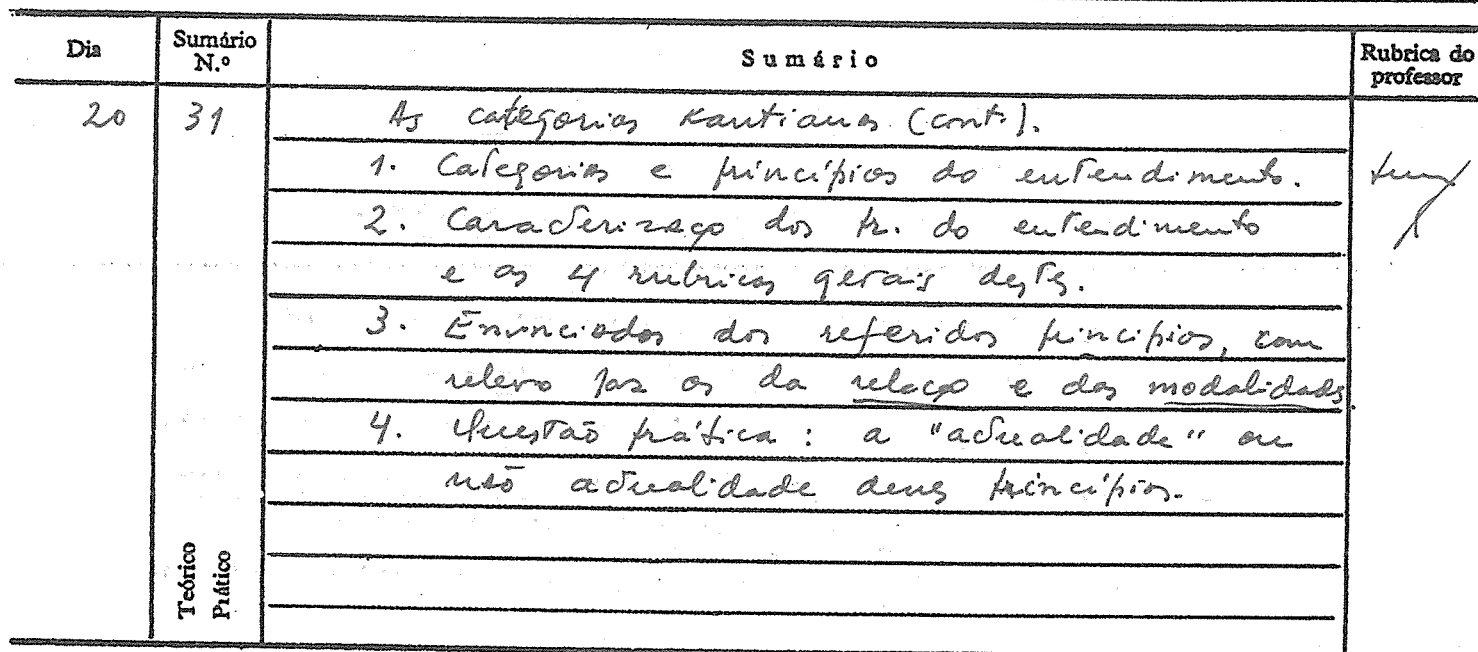 Dia
Sumário N.º
Sumário
Rubrica do professor
20 31 As categorias Kantianas (cont.).
1. Categorias e princípios do entendimento.
2. Caracterizaço dos pr. do entendimento
e as 4 rubricas gerais destes.
3. Enunciados dos referidos princípios, com
relevo para os da relaço e das modalidades.
4. Questão prática: a "actualidade" ou
não actualidade desses princípios.
Teórico
Prático